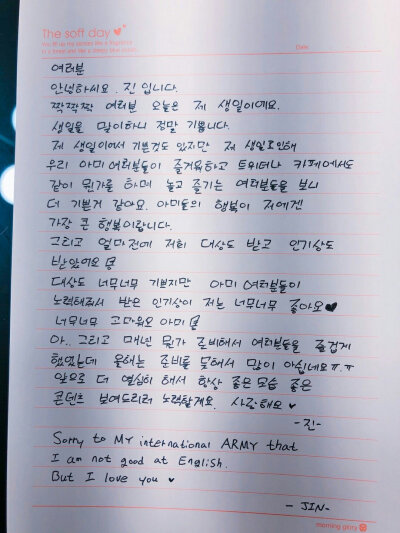 The soft day
Date.
여러분
안녕하세요. 진 입니다.
짝짝짝 여러분 오늘은 제 생일이에요.
생일을 맞이하니 정말 기쁩니다.
제 생일이여서 기쁜것도 있지만 제 생일로인해
우리 아미 여러분들이 즐거워하고 트위터나 카페에서도
같이 뭔가를 하며 놀고 즐기는 여러분들을 보니
더 기쁜거 같아요. 아미들의 행복이 저에겐
가장 큰 행복이랍니다.
그리고 얼마전에 저희 대상도 받고 인기상도
받았어요
대상도 너무너무 기쁘지만 아미 여러분들이
노력해줘서 받은 인기상이 저는 너무너무 좋아요♥
너무너무 고마워요 아미
아.. 그리고 매년 뭔가 준비해서 여러분들을 즐겁게
했었는데 올해는 준비를 못해서 많이 아쉽네요ㅠㅠ
앞으로 더 열심히 해서 항상 좋은모습 좋은
콘텐츠 보여드리려 노력할게요. 사랑해요 ♥
-진-
Sorry to MY international ARMY that
I am not good at English.
But I love you ♥
- JIN -
morning glory